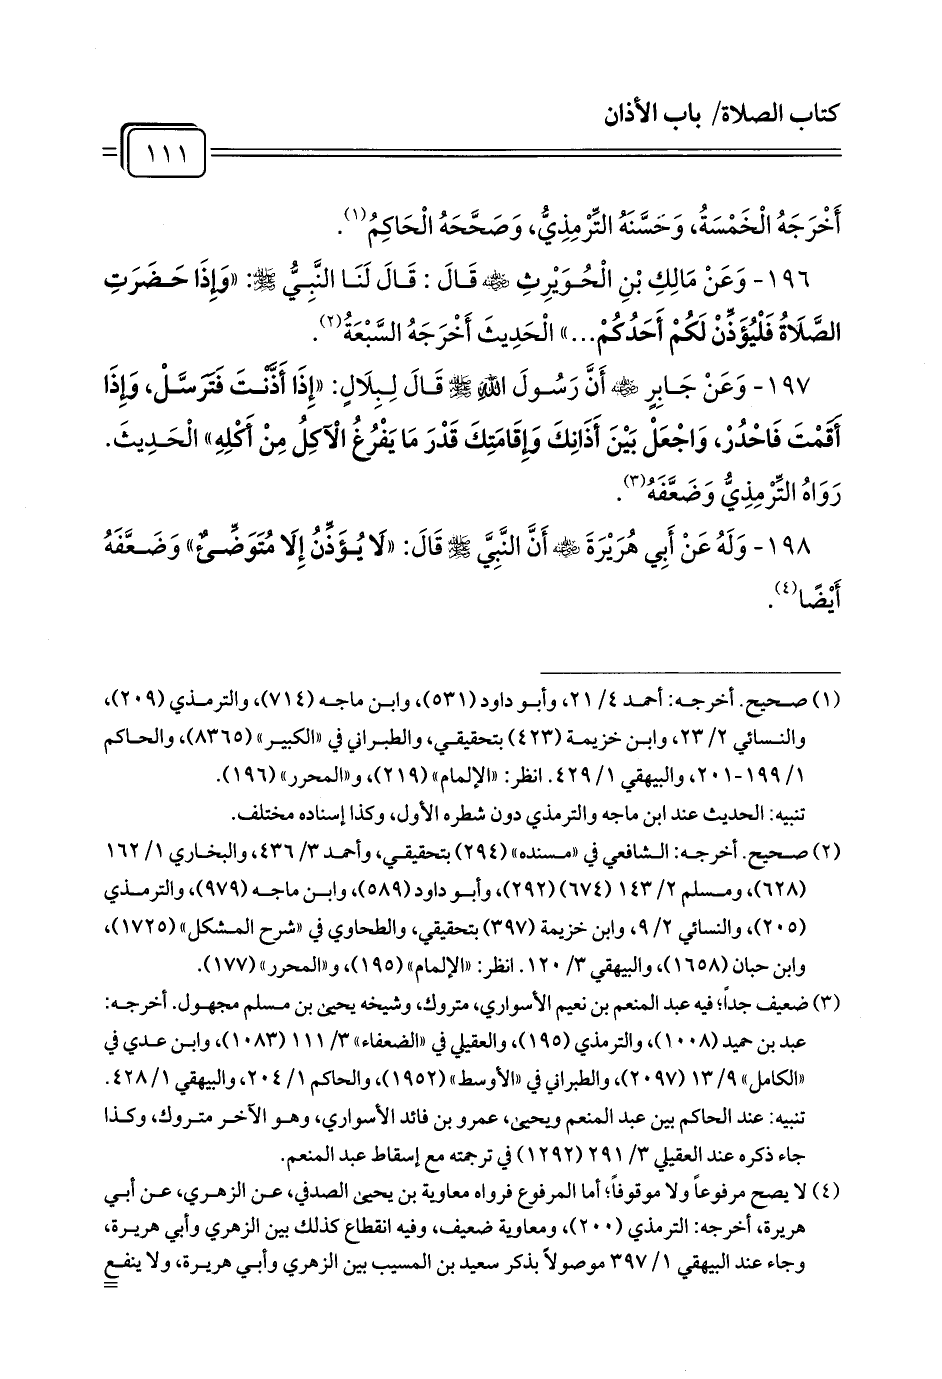 كتاب الصلاة/ باب الأذان
١١١
أَخْرَجَهُ الْخَمْسَةُ، وَحَسَّنَهُ التِّرْمِذِيُّ، وَصَحَّحَهُ الْحَاكِمُ(١).
١٩٦- وَعَنْ مَالِكِ بْنِ الْحُوَيْرِثِ ﵁ قَالَ: قَالَ لَنَا النَّبِيُّ ﷺ: «وَإِذَا حَضَرَتِ
الصَّلَاةُ فَلْيُؤَذِّنْ لَكُمْ أَحَدُكُمْ...» الْحَدِيثَ أَخْرَجَهُ السَّبْعَةُ(٢).
١٩٧- وَعَنْ جَابِرٍ ﵁ أَنَّ رَسُولَ اللَّهِ ﷺ قَالَ لِبِلَالٍ: «إِذَا أَذَّنْتَ فَتَرَسَّلْ، وَإِذَا
أَقَمْتَ فَاحْدُرْ، وَاجْعَلْ بَيْنَ أَذَانِكَ وَإِقَامَتِكَ قَدْرَ مَا يَفْرُغُ الْآكِلُ مِنْ أَكْلِهِ» الْحَدِيثَ.
رَوَاهُ التِّرْمِذِيُّ وَضَعَّفَهُ(٣).
١٩٨- وَلَهُ عَنْ أَبِي هُرَيْرَةَ ﵁ أَنَّ النَّبِيَّ ﷺ قَالَ: «لَا يُؤَذِّنُ إِلَّا مُتَوَضِّئٌ» وَضَعَّفَهُ
أَيْضًا(٤).
(١) صحيح. أخرجه: أحمد ٤/ ٢١، وأبو داود (٥٣١)، وابن ماجه (٧١٤)، والترمذي (٢٠٩)،
والنسائي ٢/ ٢٣، وابن خزيمة (٤٢٣) بتحقيقي، والطبراني في «الكبير» (٨٣٦٥)، والحاكم
١/ ١٩٩-٢٠١، والبيهقي ١/ ٤٢٩. انظر: «الإلمام» (٢١٩)، و«المحرر» (١٩٦).
تنبيه: الحديث عند ابن ماجه والترمذي دون شطره الأول، وكذا إسناده مختلف.
(٢) صحيح. أخرجه: الشافعي في «مسنده» (٢٩٤) بتحقيقي، وأحمد ٣/ ٤٣٦، والبخاري ١/ ١٦٢
(٦٢٨)، ومسلم ٢/ ١٤٣ (٦٧٤) (٢٩٢)، وأبو داود (٥٨٩)، وابن ماجه (٩٧٩)، والترمذي
(٢٠٥)، والنسائي ٢/ ٩، وابن خزيمة (٣٩٧) بتحقيقي، والطحاوي في «شرح المشكل» (١٧٢٥)،
وابن حبان (١٦٥٨)، والبيهقي ٣/ ١٢٠. انظر: «الإلمام» (١٩٥)، و«المحرر» (١٧٧).
(٣) ضعيف جداً؛ فيه عبد المنعم بن نعيم الأسواري، متروك، وشيخه يحيى بن مسلم مجهول. أخرجه:
عبد بن حميد (١٠٠٨)، والترمذي (١٩٥)، والعقيلي في «الضعفاء» ٣/ ١١١ (١٠٨٣)، وابن عدي في
«الكامل» ٩/ ١٣ (٢٠٩٧)، والطبراني في «الأوسط» (١٩٥٢)، والحاكم ١/ ٢٠٤، والبيهقي ١/ ٤٢٨.
تنبيه: عند الحاكم بين عبد المنعم ويحيى، عمرو بن فائد الأسواري، وهو الآخر متروك، وكذا
جاء ذكره عند العقيلي ٣/ ٢٩١ (١٢٩٢) في ترجمته مع إسقاط عبد المنعم.
(٤) لا يصح مرفوعاً ولا موقوفاً؛ أما المرفوع فرواه معاوية بن يحيى الصدفي، عن الزهري، عن أبي
هريرة، أخرجه: الترمذي (٢٠٠)، ومعاوية ضعيف، وفيه انقطاع كذلك بين الزهري وأبي هريرة،
وجاء عند البيهقي ١/ ٣٩٧ موصولاً بذكر سعيد بن المسيب بين الزهري وأبي هريرة، ولا ينفع
=